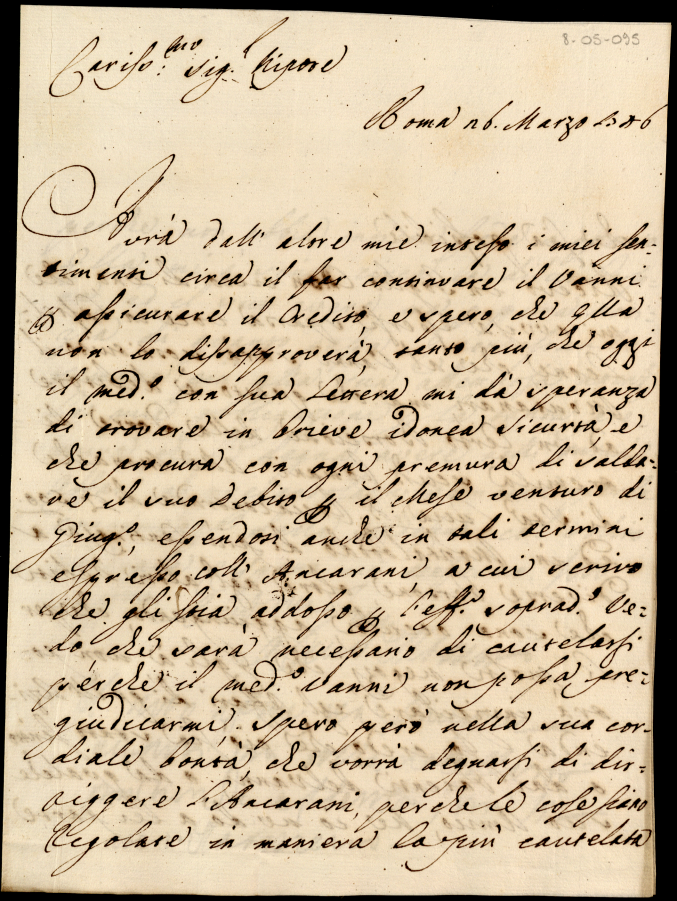 8-05-095
Cariss.mo Sig.r Nipote
Roma 26. Marzo
Avrà dall' altre mie inteso i miei sen-
timenti circa il far continuare il Vanni
p assicurare il Credito, e spero, che qlla
non lo disapproverà, tanto più, che oggi
il med.o con sua Lettera mi dà speranza
di trovare in brieve idonea sicurtà, e
che procura con ogni premura di salda-
re il suo Debito p il Mese venturo di
Giug.o, essendosi anche in tali termini
espresso coll' Ancarani, a cui scrivo
che gli stia addosso p l'eff.o soprad.o Ve-
do che sarà necessario di cautelarsi
perche il med.o Vanni non possa pre-
giudicarmi, spero però nella sua cor-
diale bontà, che vorrà degnarsi di dir-
iggere l'Ancarani, perche le cose siano
Regolate in maniera la più cautelata